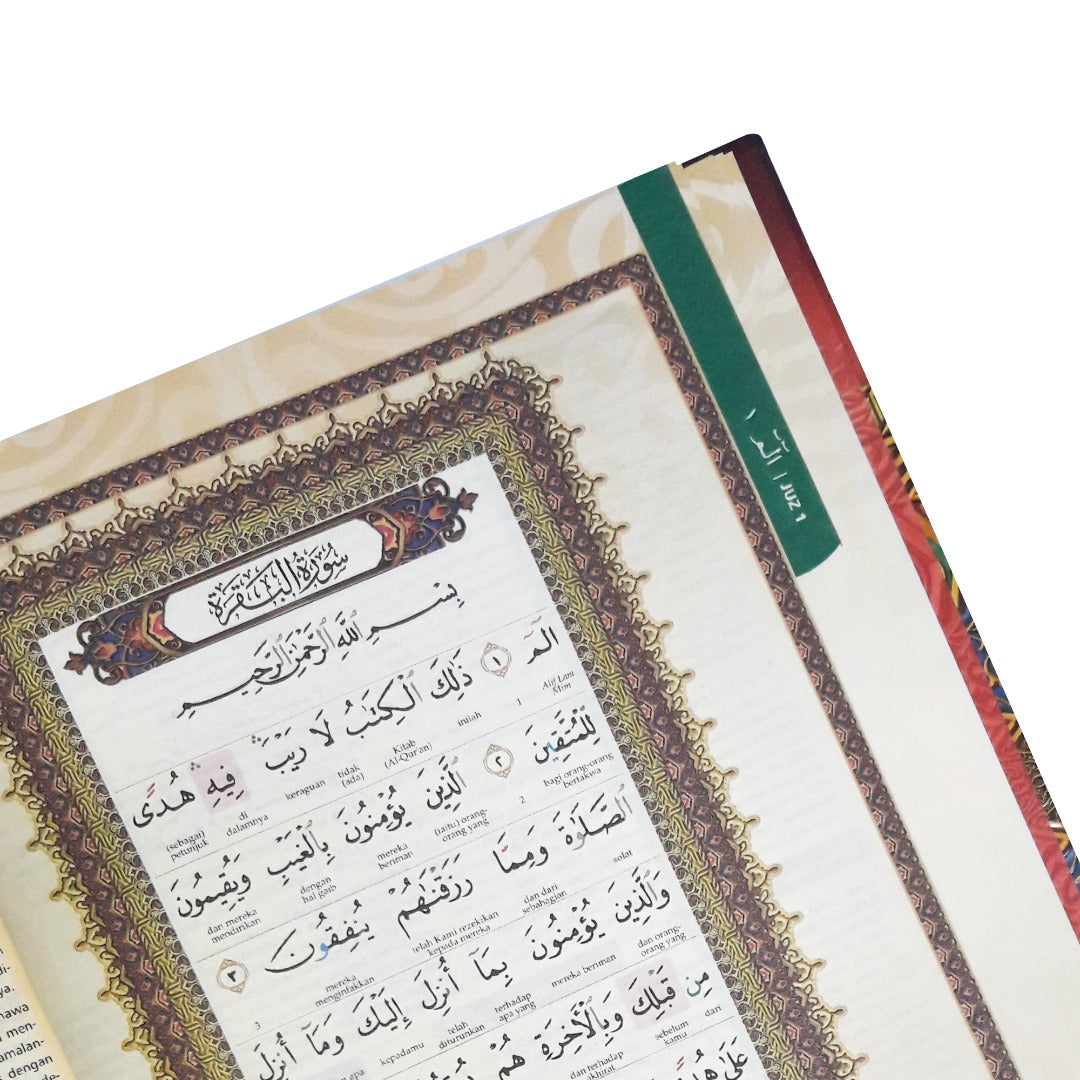 الٓمٓ ١ | JUZ 1
سُورَةُ الْبَقَرَةِ
بِسْمِ ٱللَّهِ ٱلرَّحْمَٰنِ ٱلرَّحِيمِ
الٓمٓ ١ ذَٰلِكَ ٱلْكِتَٰبُ لَا رَيْبَ ۛ فِيهِ ۛ هُدًى
Alif Lam Mim 1 inilah Kitab (Al-Qur'an) tidak (ada) keraguan di dalamnya (sebagai) petunjuk
لِّلْمُتَّقِينَ ٢ ٱلَّذِينَ يُؤْمِنُونَ بِٱلْغَيْبِ وَيُقِيمُونَ
bagi orang-orang bertakwa 2 (iaitu) orang-orang yang mereka beriman dengan hal gaib dan mereka mendirikan
ٱلصَّلَوٰةَ وَمِمَّا رَزَقْنَٰهُمْ يُنفِقُونَ ٣
solat dan dari sebahagian telah Kami rezekikan kepada mereka mereka menginfakkan 3
وَٱلَّذِينَ يُؤْمِنُونَ بِمَآ أُنزِلَ إِلَيْكَ وَمَآ أُنزِلَ
dan orang-orang yang mereka beriman terhadap apa yang telah diturunkan kepadamu
مِن قَبْلِكَ وَبِٱلْءَاخِرَةِ هُمْ
dari sebelum kamu dan terhadap akhirat
عَلَىٰ هُدًى
di-
ya.
nawa
men-
amalan-
dengan
de-